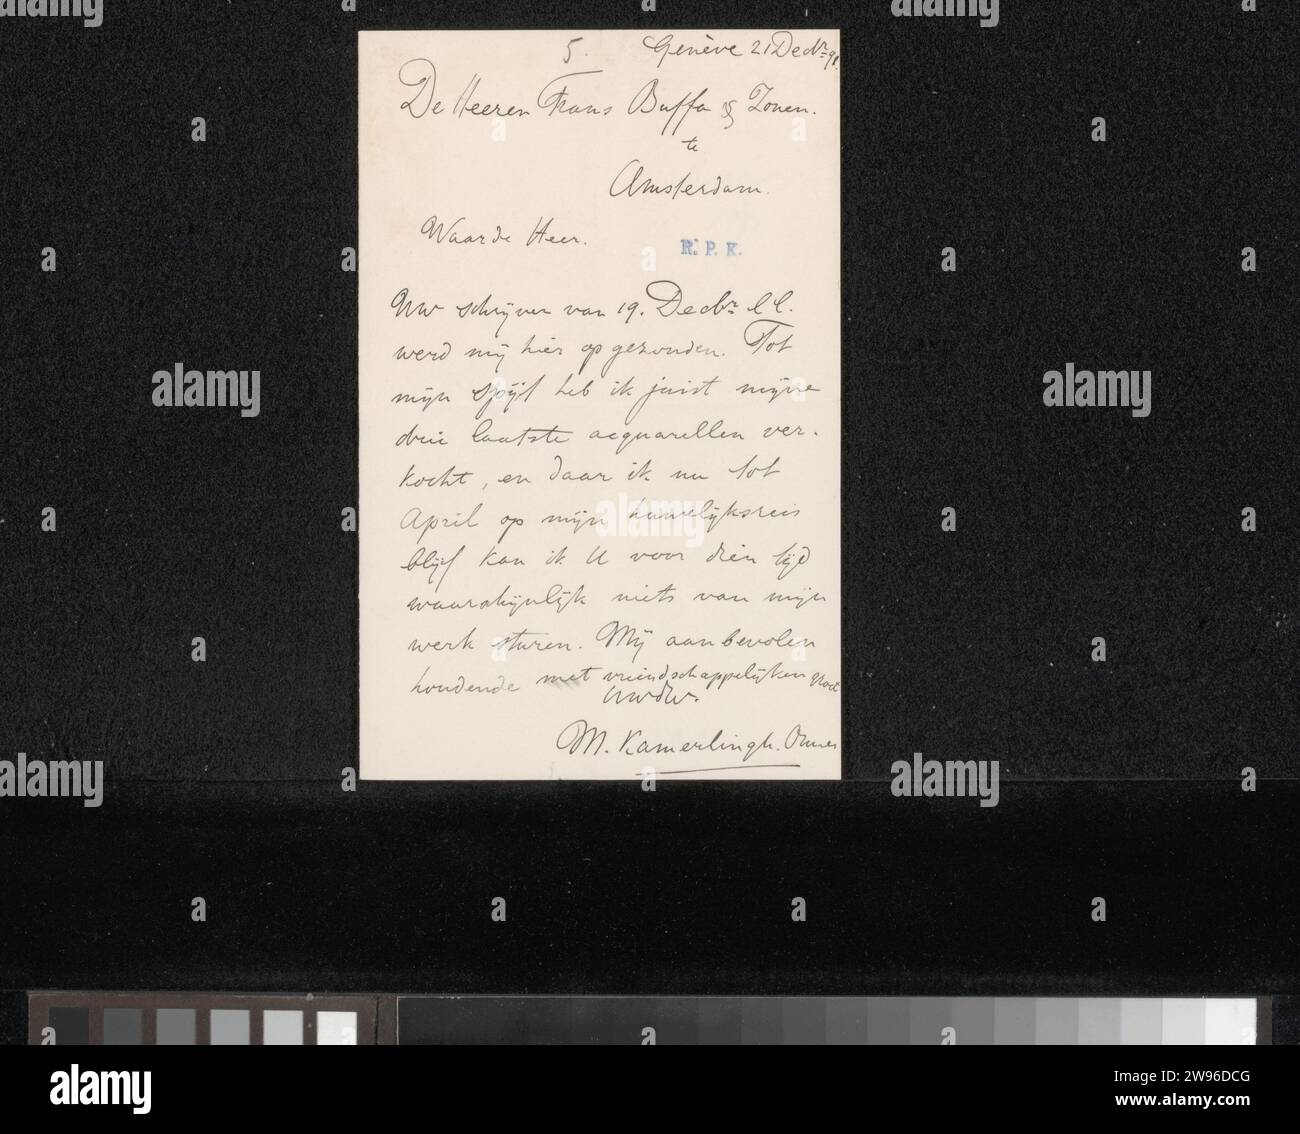 5. Genève 21 Decbr 98.
De Heeren Frans Buffa & Zonen.
te
Amsterdam.
Waarde Heer.
R. P. K.
Uw schrijven van 19. Decbr ll.
werd mij hier opgezonden. Tot
mijn spijt heb ik juist mijne
drie laatste acquarellen ver-
kocht, en daar ik nu tot
April op mijn huwelijksreis
blijf kan ik U voor dien tijd
waarschijnlijk niets van mijn
werk sturen. Mij aanbevolen
houdende met vriendschappelijken groet
Uwdw.
M. Kamerlingh. Onnes
alamy
Image ID: 2W96DCG
www.alamy.com